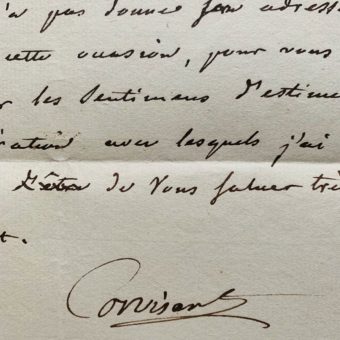 n'a pas donné son adresse
cette occasion, pour vous
les sentimens d'estime
ration avec lesquels j'ai
de vous saluer trè
t.
Corvisart